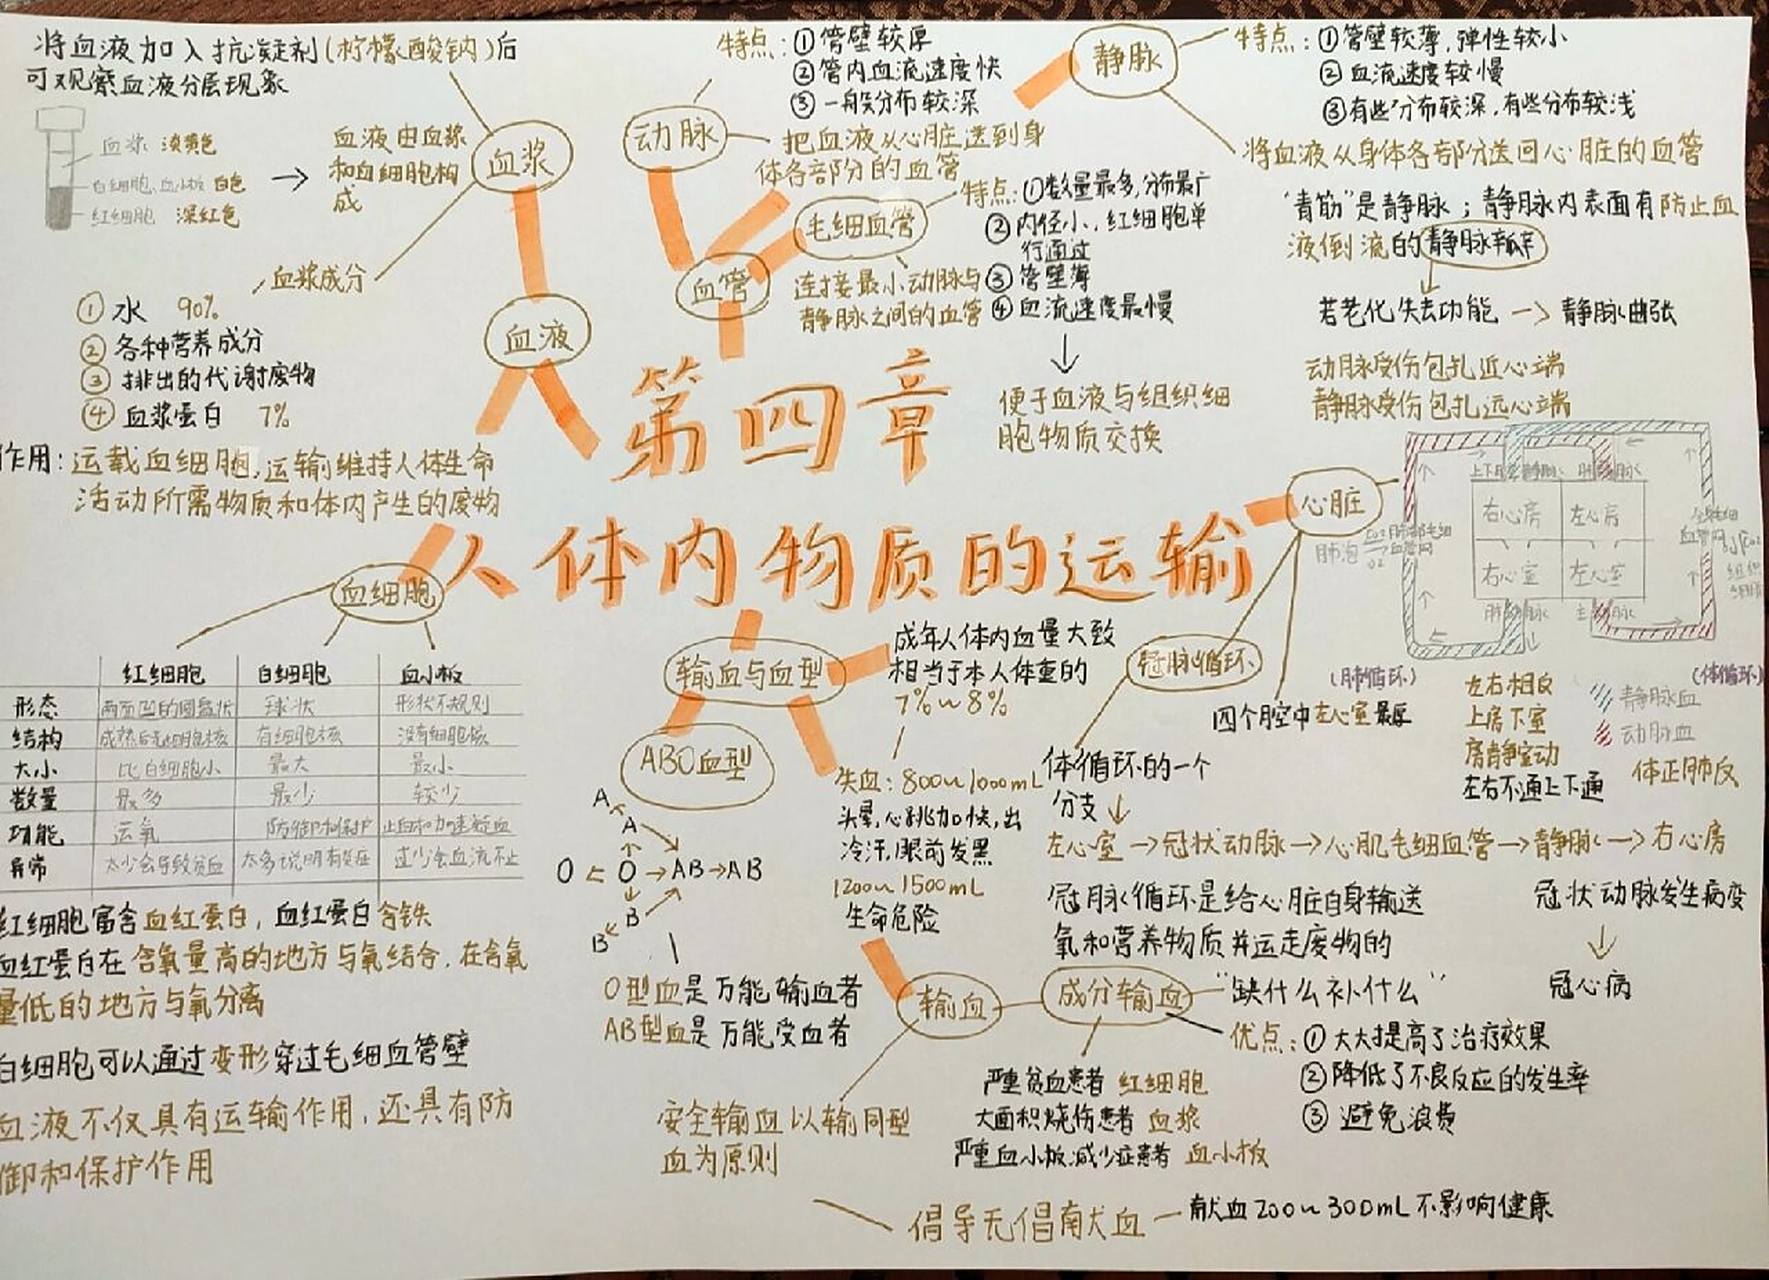 将血液加入抗凝剂(柠檬酸钠)后
可观察血液分层现象
血浆 淡黄色
白细胞、血小板 白色
红细胞 深红色
血液由血浆
和血细胞构
成
血浆
血浆成分
① 水 90%
② 各种营养成分
③ 排出的代谢废物
④ 血浆蛋白 7%
作用：运载血细胞,运输维持人体生命
活动所需物质和体内产生的废物
血液
动脉
特点：① 管壁较厚
② 管内血流速度快
③ 一般分布较深
把血液从心脏送到身
体各部分的血管
血管
毛细血管
特点：①数量最多,分布最广
② 内径小,红细胞单
行通过
③ 管壁薄
④ 血流速度最慢
连接最小动脉与
静脉之间的血管
便于血液与组织细
胞物质交换
静脉
特点：① 管壁较薄,弹性较小
② 血流速度较慢
③有些分布较深,有些分布较浅
将血液从身体各部分送回心脏的血管
“青筋”是静脉；静脉内表面有防止血
液倒流的静脉瓣
若老化失去功能 → 静脉曲张
动脉受伤包扎近心端
静脉受伤包扎远心端
第四章
人体内物质的运输
心脏
静脉 肺静脉
右心房 左心房
右心室 左心室
肺动脉 主动脉
肺泡
组织
(肺循环) (体循环)
静脉血
动脉血
左右相反
上房下室
房静室动
左右不通上下通
体正肺反
四个腔中左心室最厚
冠脉循环
体循环的一个
分支
左心室→冠状动脉→心肌毛细血管→静脉→右心房
冠脉循环是给心脏自身输送
氧和营养物质并运走废物的
冠状动脉发生病变
冠心病
血细胞
红细胞 白细胞 血小板
形态 两面凹的圆盘状 球状 形状不规则
结构 成熟后无细胞核 有细胞核 没有细胞核
大小 比白细胞小 最大 最小
数量 最多 最少 较少
功能 运氧 防御和保护 止血和加速凝血
异常 太少会导致贫血 太多说明有炎症 过少会血流不止
红细胞富含血红蛋白，血红蛋白含铁
血红蛋白在含氧量高的地方与氧结合,在含氧
量低的地方与氧分离
白细胞可以通过变形穿过毛细血管壁
血液不仅具有运输作用,还具有防
御和保护作用
输血与血型
成年人体内血量大致
相当于本人体重的
7%~8%
失血：800~1000mL
头晕,心跳加快,出
冷汗,眼前发黑
1200~1500mL
生命危险
ABO血型
A
A
O ← O → AB → AB
B
B
O型血是万能输血者
AB型血是万能受血者
输血
安全输血以输同型
血为原则
成分输血
“缺什么补什么”
优点：① 大大提高了治疗效果
② 降低了不良反应的发生率
③ 避免浪费
严重贫血患者 红细胞
大面积烧伤患者 血浆
严重血小板减少症患者 血小板
倡导无倡献血 — 献血200~300mL不影响健康